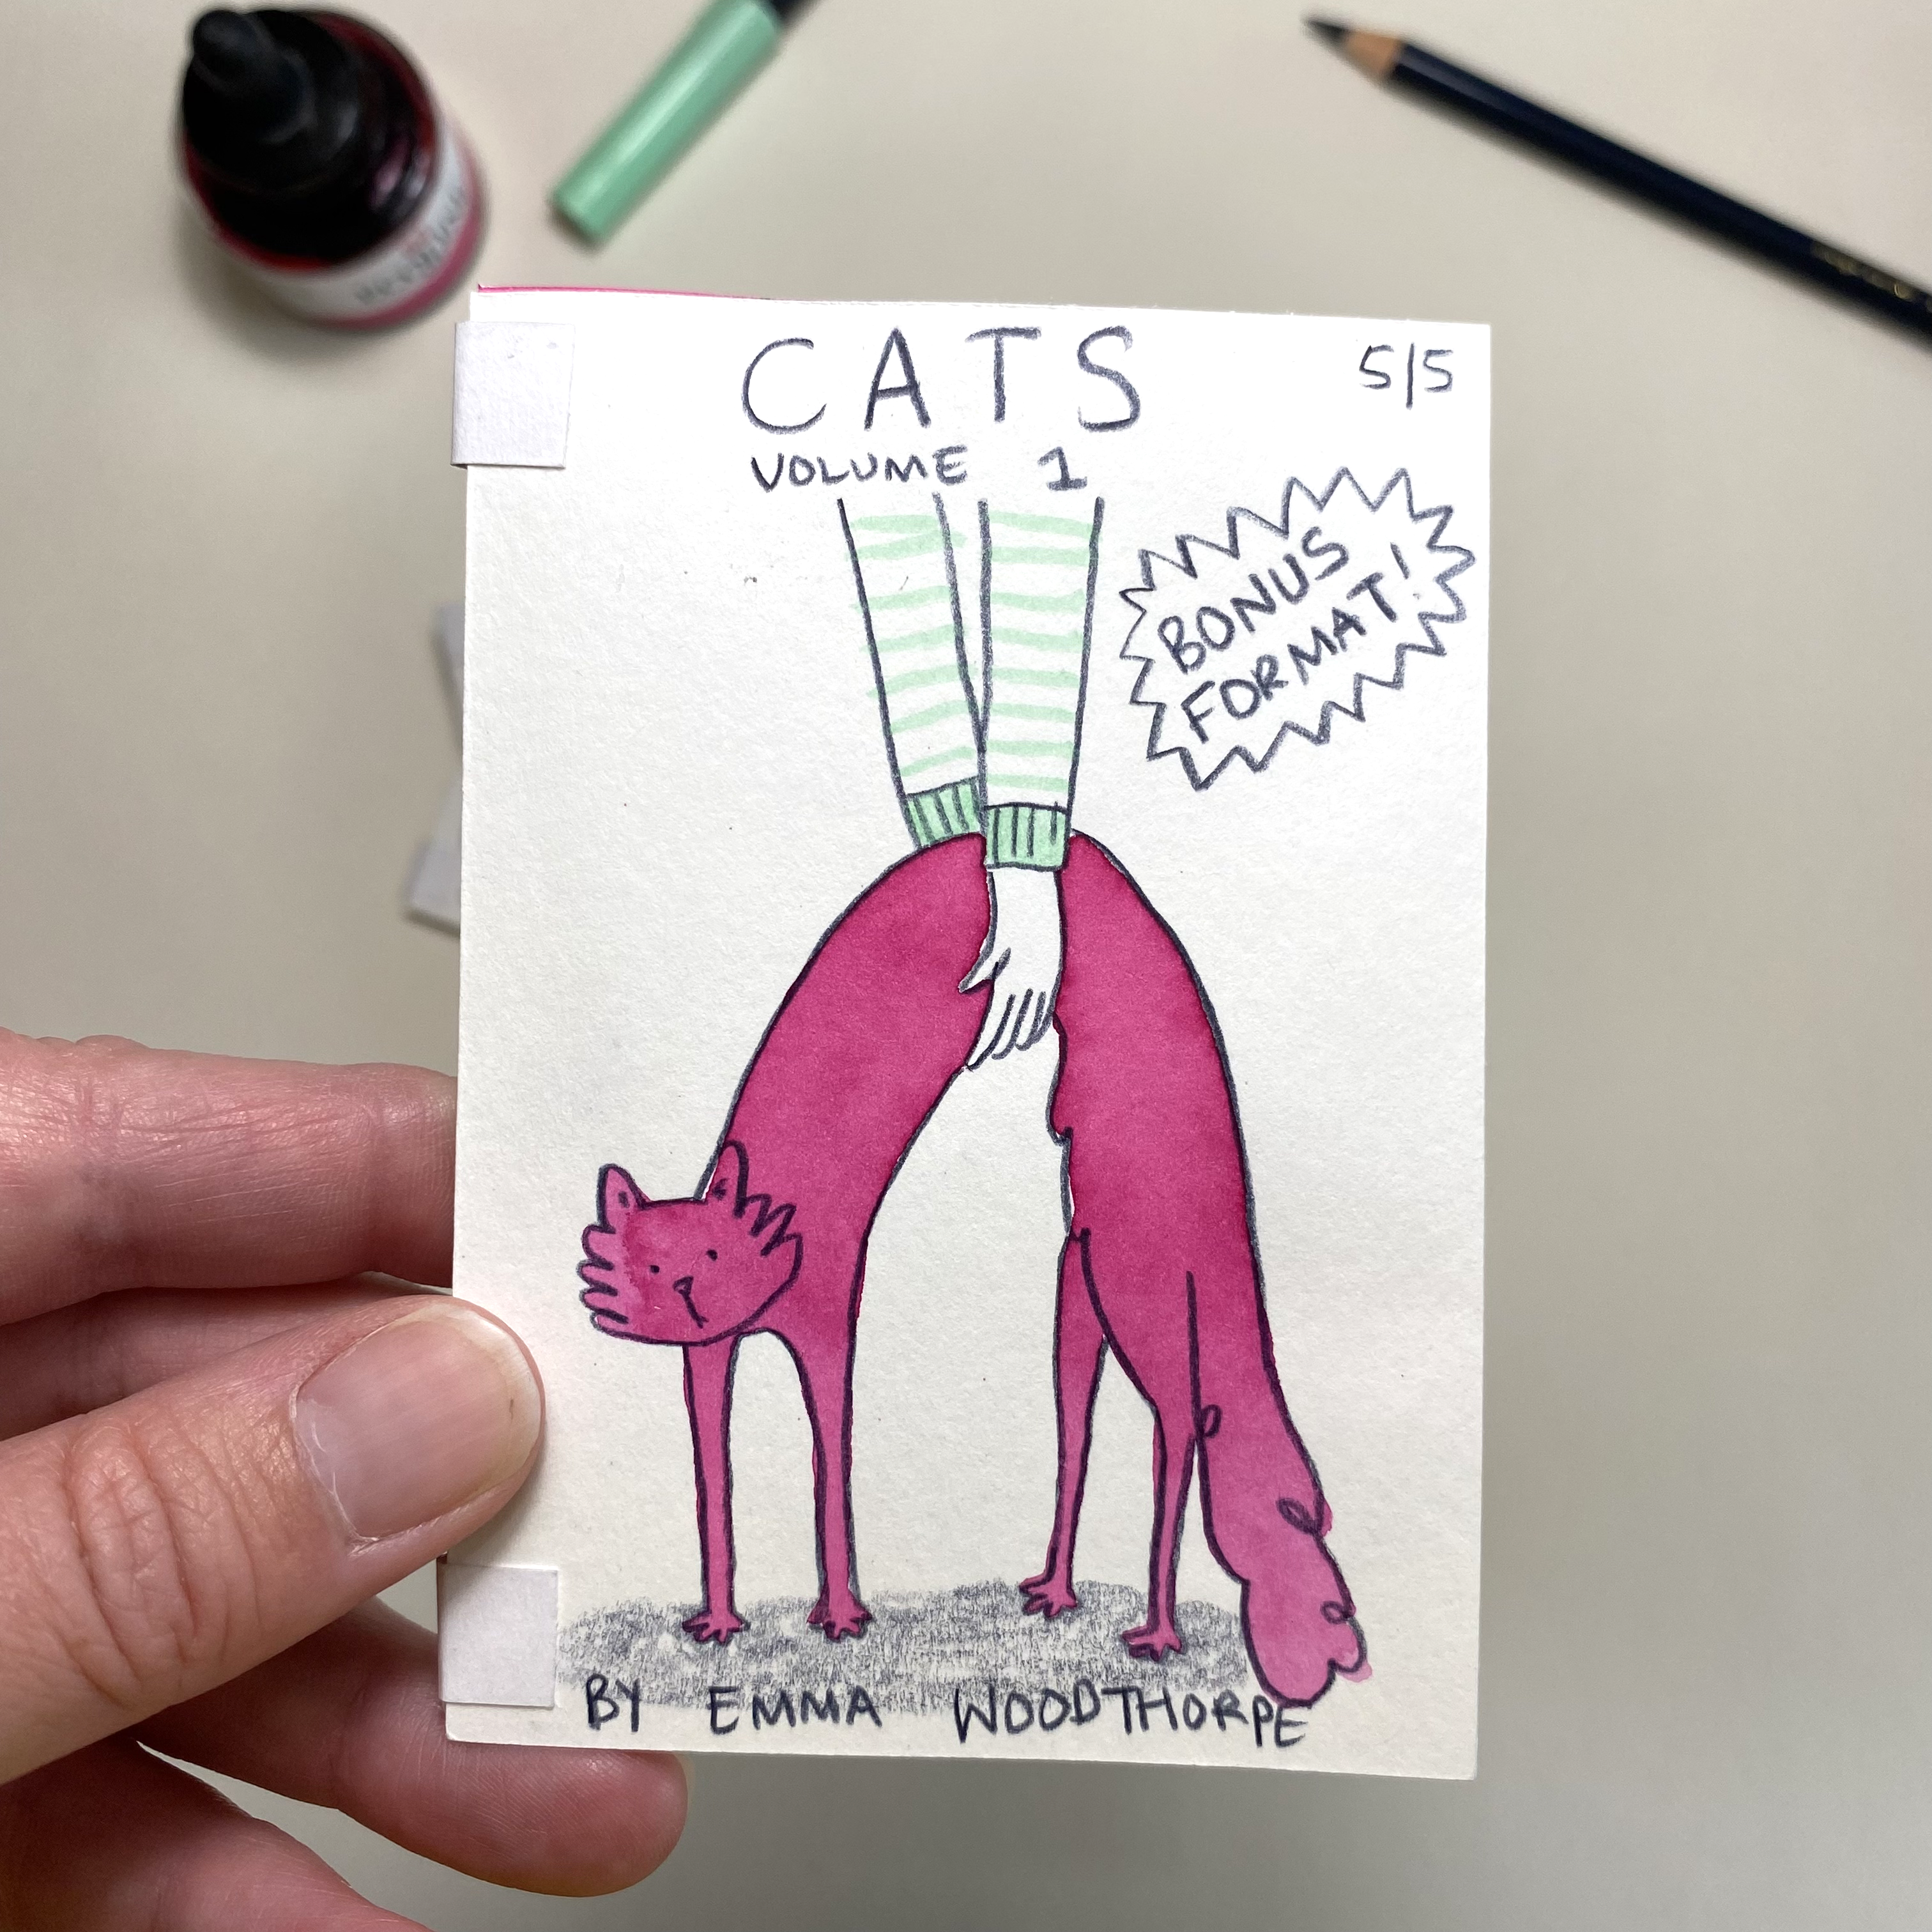 CATS
5/5
VOLUME 1
BONUS
FORMAT!
BY EMMA WOODTHORPE